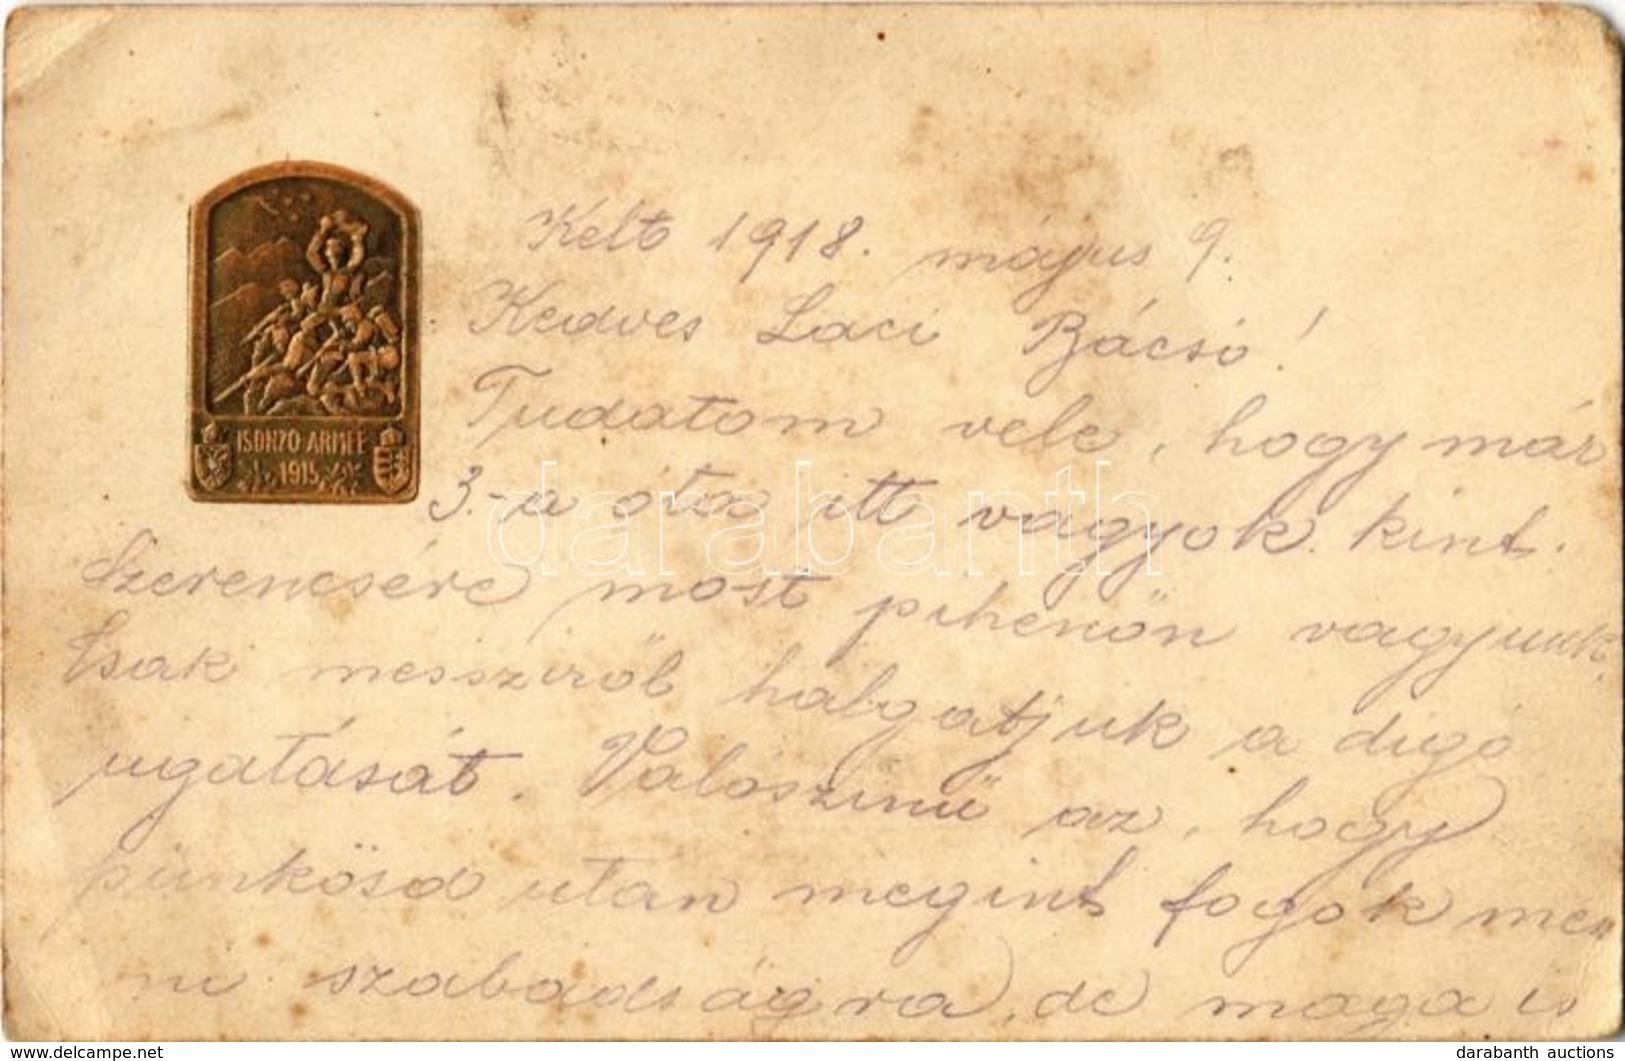 ISONZO ARMEE
1915
Kelt 1918. május 9.
Kedves Laci Bácsi!
Tudatom vele, hogy már
3.-a óta itt vagyok kint.
Szerencsére most pihenőn vagyunk.
Csak messziről halgatjuk a digó
ugatását. Valószinű az, hogy
pünkösd után megint fogok men
ni szabadságra, de maga is
darabanth
delcampe.net
darabanth auctions